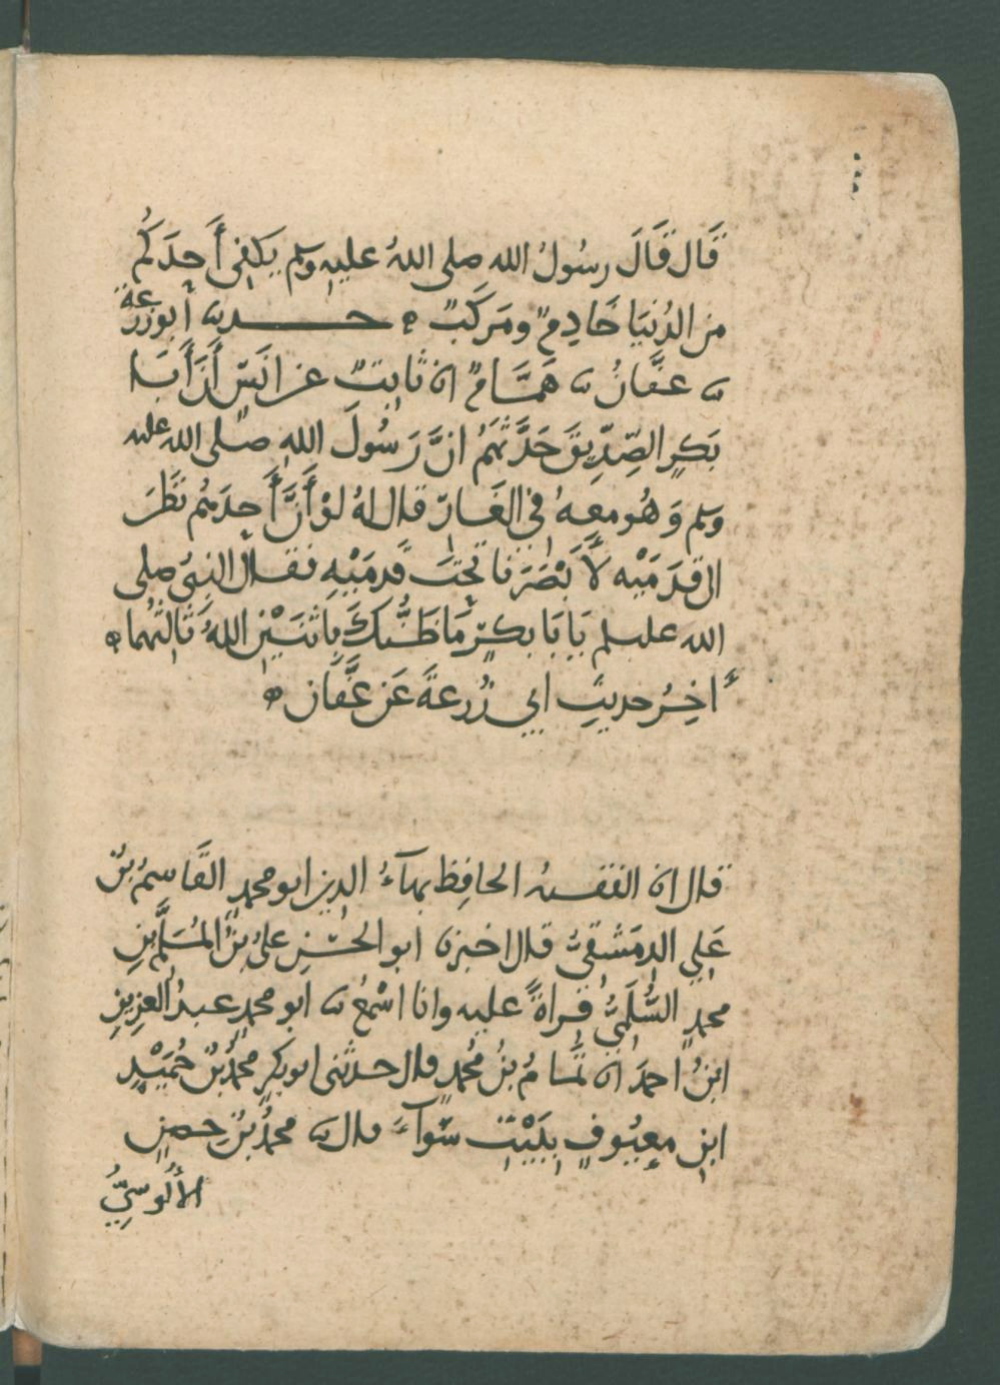 قَال قَالَ رسُولُ الله صلى اللهُ عليه وسلم يَكفِي أَحِدَكُم
من الدُنيَا خَادِمٌ ومَركَبٌ ه حـــدثنا أبوزرعة
نا عفَّانُ نا هَمَّامٌ انا ثَابِتٌ عن انَسٍ أَنَّ أَبَا
بَكرٍ الصِّدِّيقَ حَدَّثَهُم انَّ رَسُولَ اللهِ صلى الله عليه
وسلم وَهُو معهُ في الغَارِ قال لهُ لَوْ أَنَّ أَحِدَهُم نَظَرَ
الى قدَمَيْه لَأَبْصَرَنَا تَحْتَ قَدمَيْهِ فقال النبيُّ صلى
الله عليه وسلم يَا بَا بكرٍ مَا ظَنُّكَ بِاثنَيْنِ اللهُ ثَالِثُهما ه
آخِرُ حديثِ ابي زُرعةَ عَن عَفَّان ه
قال انا الفقيه الحافِظ بهآءُ الدين ابو محمدٍ القَاسِمُ بنُ
عَلي الدِمَشقيُّ قال اخبرنا ابو الحسَنِ عليُّ بنُ المُسَلَّمِ بنِ
محمدٍ السُّلَمِيُّ قراةً عليه وانا اسْمَعُ نا ابو محمدٍ عبدُ العزِيزِ
ابنُ احمدَ انا تَمَّامُ بنُ مُحمدٍ قال حدثنى ابو بكرٍ محمدُ بنُ حُمَيْدِ
ابنِ معيُوفٍ بِبَيْتِ سَوآءَ قال نا محمدُ بنُ حصنٍ
الأَلُوسِيُّ